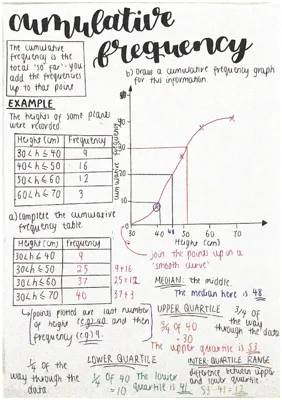 cumulative
frequency
The cumulative
frequency is the
total 'so far' - you
add the frequencies
up to that point.
b) Draw a cumulative frequency graph
for this information.
EXAMPLE
The heights of some plants
were recorded.
Height (cm) Frequency
30<h≤40 9
40<h≤50 16
50<h≤60 12
60<h≤70 3
a) Complete the cumulative
frequency table.
Height (cm) Frequency
30<h≤40 9
30<h≤50 25 9+16
30<h≤60 37 25+12
30<h≤70 40 37+3
cumulative frequency
40
30
20
10
30 40 48 50 60 70
Height (cm)
join the points up in a
'smooth curve'
MEDIAN: the middle.
The median here is 48
points plotted are last number
of height (eg) 40 and then
frequency (eg) 9.
UPPER QUARTILE 3/4 of
the way
through the data
3/4 of 40
= 30
The upper quartile is 53
LOWER QUARTILE
1/4 of the
way through the
data.
1/4 of 40
= 10
The lower
quartile is 41
INTER QUARTILE RANGE
difference between upper
and lower quartile.
53-41=12